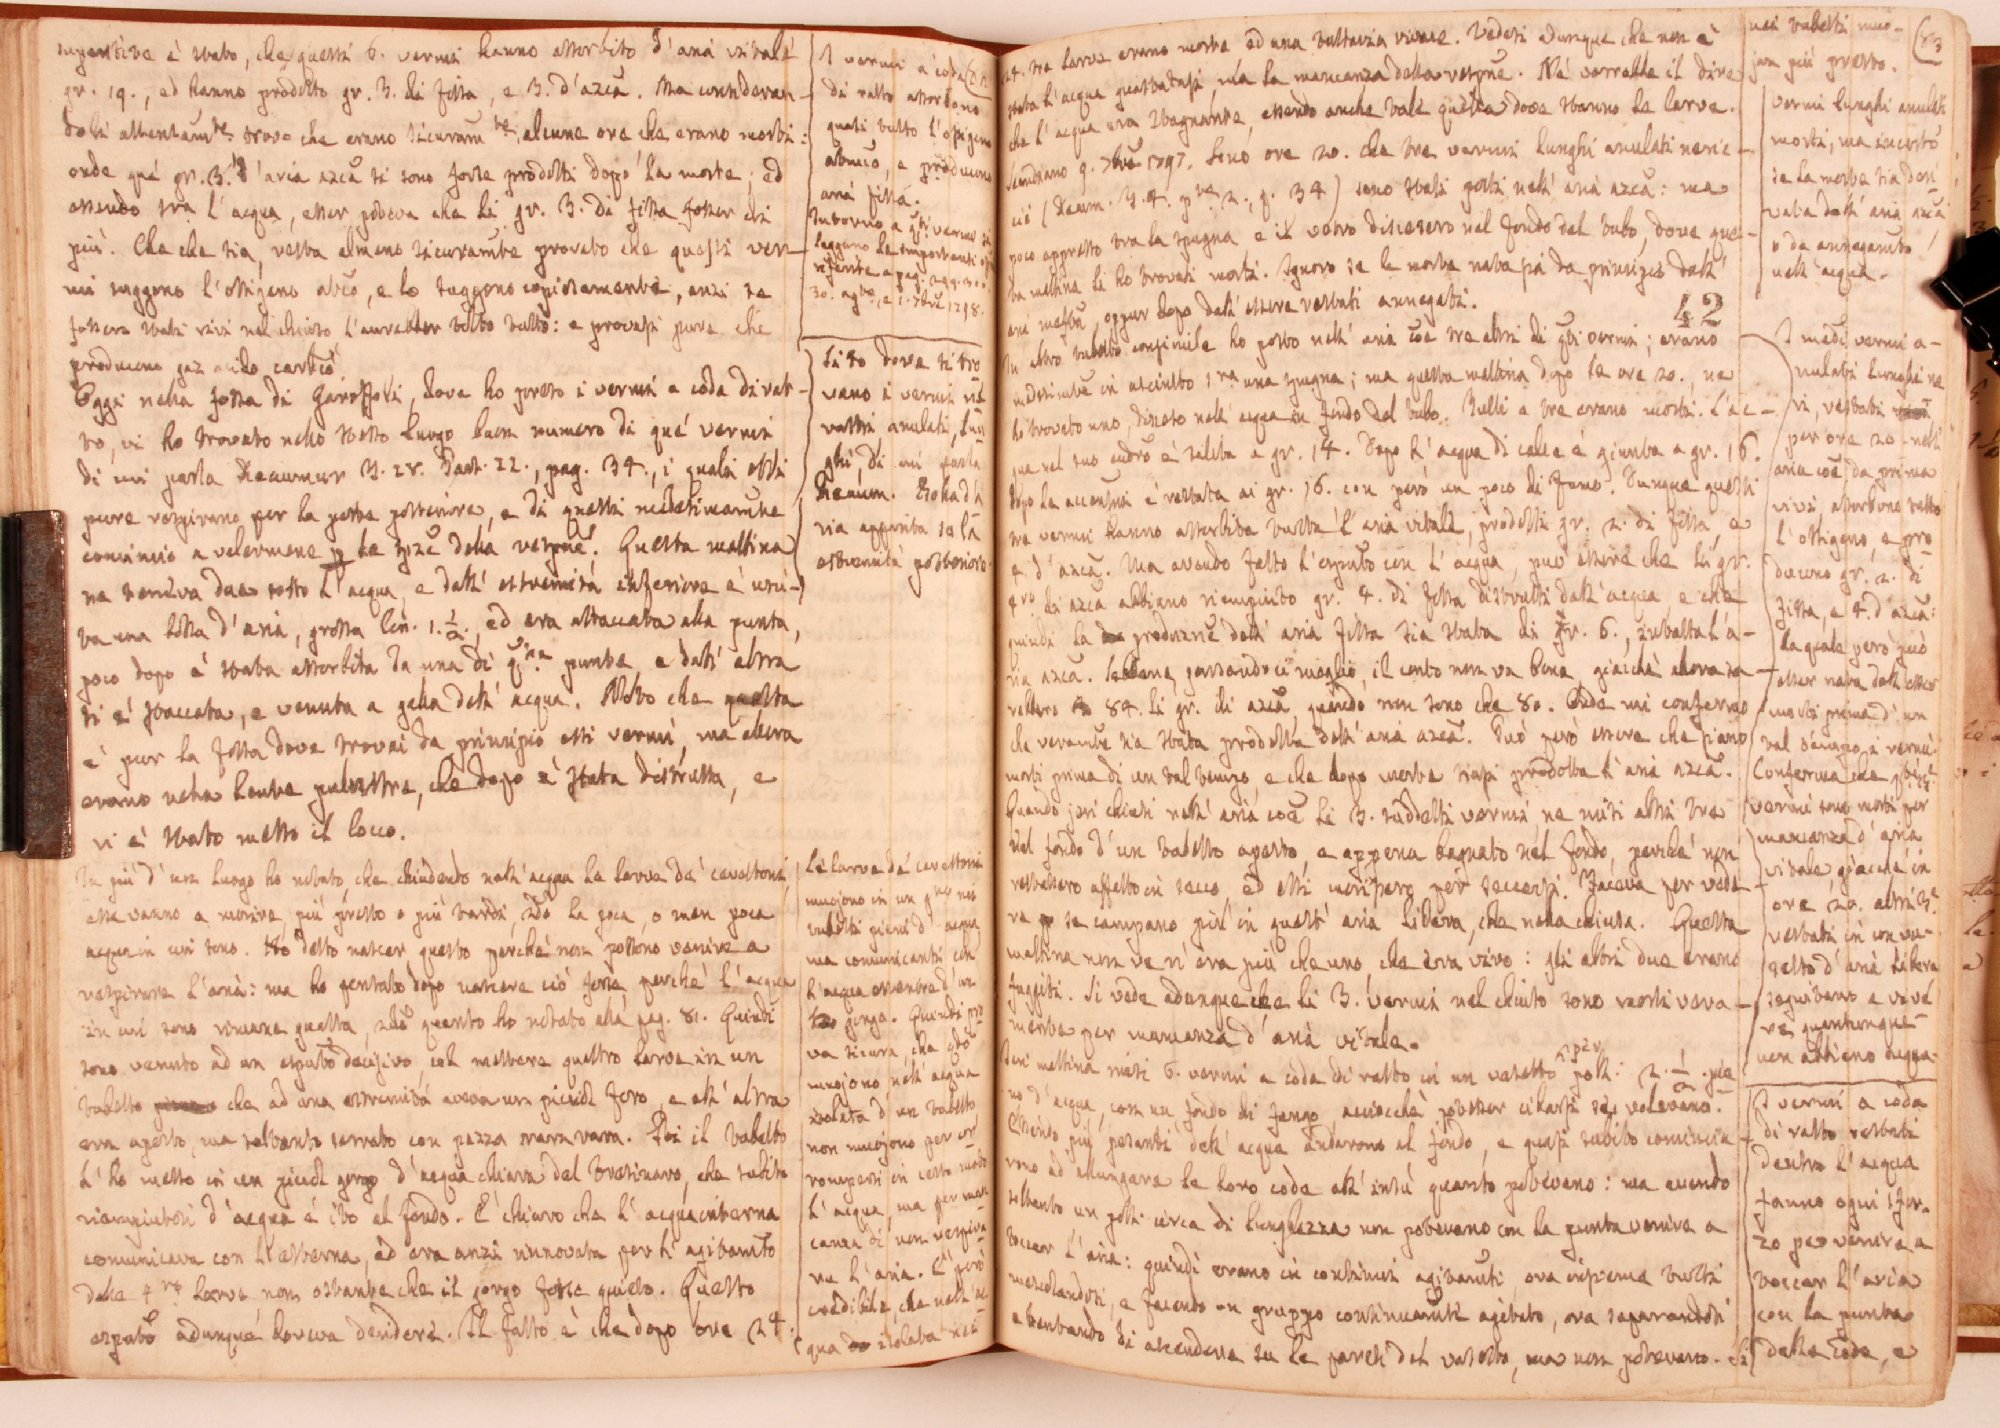 è stato, che questi 6. vermi hanno assorbito d'aria vitale
gr. 19., ed hanno prodotto gr. 3. di fissa, e 3. d'azca. Ma consideran-
trovo che erano alcune ore che erano morti:
onde qué gr. 3. d'aria azca si sono forse prodotti dopo la morte; ed
essendo tra l'acqua, esser poteva che li gr. 3. di fissa fosser di
più. Che che sia, resta almeno sicuramte provato che questi ver-
mi suggono l'ossigeno, e lo suggono copiosamente, anzi se
fossero stati vivi nel chiuso, l'avrebber tolto tutto: e provasi pure che
producono gaz acido carbco
Oggi nella fossa di, dove ho preso i vermi a coda di rat-
to, vi ho trovato nello stesso luogo buon numero di qué vermi
di cui parla Reaumur pag. 34., i quali essi
pure respirano per la parte posteriore, e di questi medesimamte
comincio a valermene per le spze della respne. Questa mattina
ne teneva due sotto l'acqua, e dall'estremità inferiore è usci-
ta una bolla d'aria, grossa lin. 1. 1/2, ed era attaccata alla punta,
poco dopo è stata assorbita da una di punte, e dall'altra
si è staccata, e venuta a galla dell'acqua. Noto che questa
è pur la fossa dove trovai da principio essi vermi, ma allora
erano nella palustre, che dopo è stata distrutta, e
vi è stato messo il
In più d'un luogo ho notato, che chiudendo nell'acqua le larve de' cavalloni,
esse vanno a morire, più presto o più tardi, sdo la poca, o men poca
acqua in cui sono. Ho detto nascer questo perché non possono venire a
respirare l'aria: ma ho pensato dopo nascere ciò forse perché l'acqua
in cui sono rimane guasta, sdo quanto ho notato alla pag. 81. Quindi
sono venuto ad un decisivo col mettere quattro larve in un
tubetto che ad una estremità aveva un picciol foro, e all'altra
era aperto, ma soltanto serrato con pezza rara rara. Poi il tubetto
l'ho messo in un picciol gorgo d'acqua chiara del Tresinaro, che subito
riempiutosi d'acqua è ito al fondo. È chiaro che l'acqua interna
comunicava con l'esterna, ed era anzi rinnovata per l'agitamto
delle 4ro larve, non ostante che il gorgo fosse quieto. Questo
adunque doveva decidere. Il fatto è che dopo ore 24.
I vermi a coda
di ratto assorbono
quasi tutto l'ossigeno
e producono
aria fissa.
Intorno a qsti vermi si
leggano le importanti
riferite a pag. 299. 300.
30. agto, e 1. 7bre 1798.
Sito dove si tro
vano i vermi
anulati, lun
ghi, di cui parla
Reaum. Bolla d'a
ria apparita su la
estremità posteriore.
Le larve de' cavalloni
muojono in un gno nei
tubetti pieni d'acqua
ma comunicanti con
l'acqua esterna d'un
gorgo. Quindi pro
va sicura, che qdo
muojono nell'acqua
isolata d'un tubetto
non muojono per cor
rompersi in certo modo
l'acqua, ma per man
canza di non respira
re l'aria. È però
credibile, che nell'ac
qua isolata
24. tre larve erano morte ed una tuttavia vivace. Vedesi adunque che non è
stata l'acqua guastatasi, ma la mancanza della respne. Né varrebbe il dire
che l'acqua era stagnante, essendo anche tale quella dove stanno le larve.
Scandiano 9. 7bre 1797. Sono ore 20. che tre vermi lunghi anulati neric-
ci (Reaum. T. 4. p. 2., p. 34) sono stati posti nell'aria azca: ma
poco appresso tra la spugna e il vetro discesero nel fondo del tubo, dove que-
sta mattina li ho trovati morti. Ignoro se la morte nata sia da principio dall'
aria, oppur dopo dall'essere restati annegati.
42
In altro tubetto consimile ho posto nell'aria coe tre altri di qsti vermi; erano
medesimte in asciutto sra una spugna; ma questa mattina dopo le ore 20., ne
ho trovato uno, disceso nell'acqua in fondo del tubo. Tutti e tre erano morti. L'ac-
qua nel tubo è salita a gr. 14. Dopo l'acqua di calce è giunta a gr. 16.
Dopo la accensni è restata ai gr. 16. con però un poco di fumo. Dunque questi
tre vermi hanno assorbita tutta l'aria vitale, prodotti gr. 2. di fissa, e
4. d'azca. Ma avendo fatto con l'acqua, può essere che li gr.
4ro di azca abbiano riempiuto gr. 4. di fissa disciolti dall'acqua, e che
quindi la produzne dell'aria fissa sia stata di gr. 6., subalt l'a-
ria azca. Sebbene, pensandoci meglio, il conto non va bene, giacché allora sa-
rebbero 84. li gr. di azca quando non sono che 80. Onde mi confermo
che veramte sia stata prodotta dell'aria azca. Può però essere che siano
morti prima di un tal tempo, e che dopo morte siasi prodotta l'aria azca.
Quando jeri chiusi nell'aria coe li 3. suddetti vermi, ne misi altri tre
nel fondo d'un tubetto aperto, e appena bagnato nel fondo, perché non
restassero affatto in secco, ed essi morissero per seccarsi. Faceva per vede-
re se campano più in quest'aria libera, che nella chiusa. Questa
mattina non ve n'era più che uno, che era vivo: gli altri due erano
fuggiti. Si vede adunque che li 3. vermi nel chiuso sono morti vera-
mente per mancanza d'aria vitale.
Jeri mattina misi 6. vermi a coda di ratto in un vasetto per poll. 2. 1/2 pie
no d'acqua, con un fondo di fango, acciocché potesser cibarsi se volevano.
Essendo più pesanti dell'acqua andarono al fondo, e quasi subito comincia-
rono ad allungare le loro code all'insù quanto potevano: ma avendo
soltanto un poll. circa di lunghezza non potevano con la punta venire a
toccar l'aria: quindi erano in continui agitamti, ora insieme tutti
mescolandosi, e facendo un gruppo continuamte agitato, ora separandosi
e tentando di ascendere su le pareti del vasetto, ma non potevano.
nei tubetti muo-
jan più presto.
(83
Vermi lunghi anulati
morti, ma incerto
se la morte sia deri
vata dall'aria azca,
o da annegamto
nell'acqua.
I medi vermi a-
nulati lunghi ne
ri, restati
per ore 20. nell'
aria coe, da prima
vivi assorbono tutto
l'ossigeno, e pro
ducono gr. 2. di
fissa, e 4. d'azca:
la quale però può
esser nata dall'esser
morti prima d'un
tal tempo, i vermi.
Conferma che qsti 3.
vermi sono morti per
mancanza d'aria
vitale, giacché in
ore 20. altri 3.
restati in un va-
setto d'aria libera
seguitano a vive
re, quantunque
non abbiano acqua.
I vermi a coda
di ratto restati
dentro l'acqua
fanno ogni sfor-
zo per venire a
toccar l'aria
con la punta
della coda, e